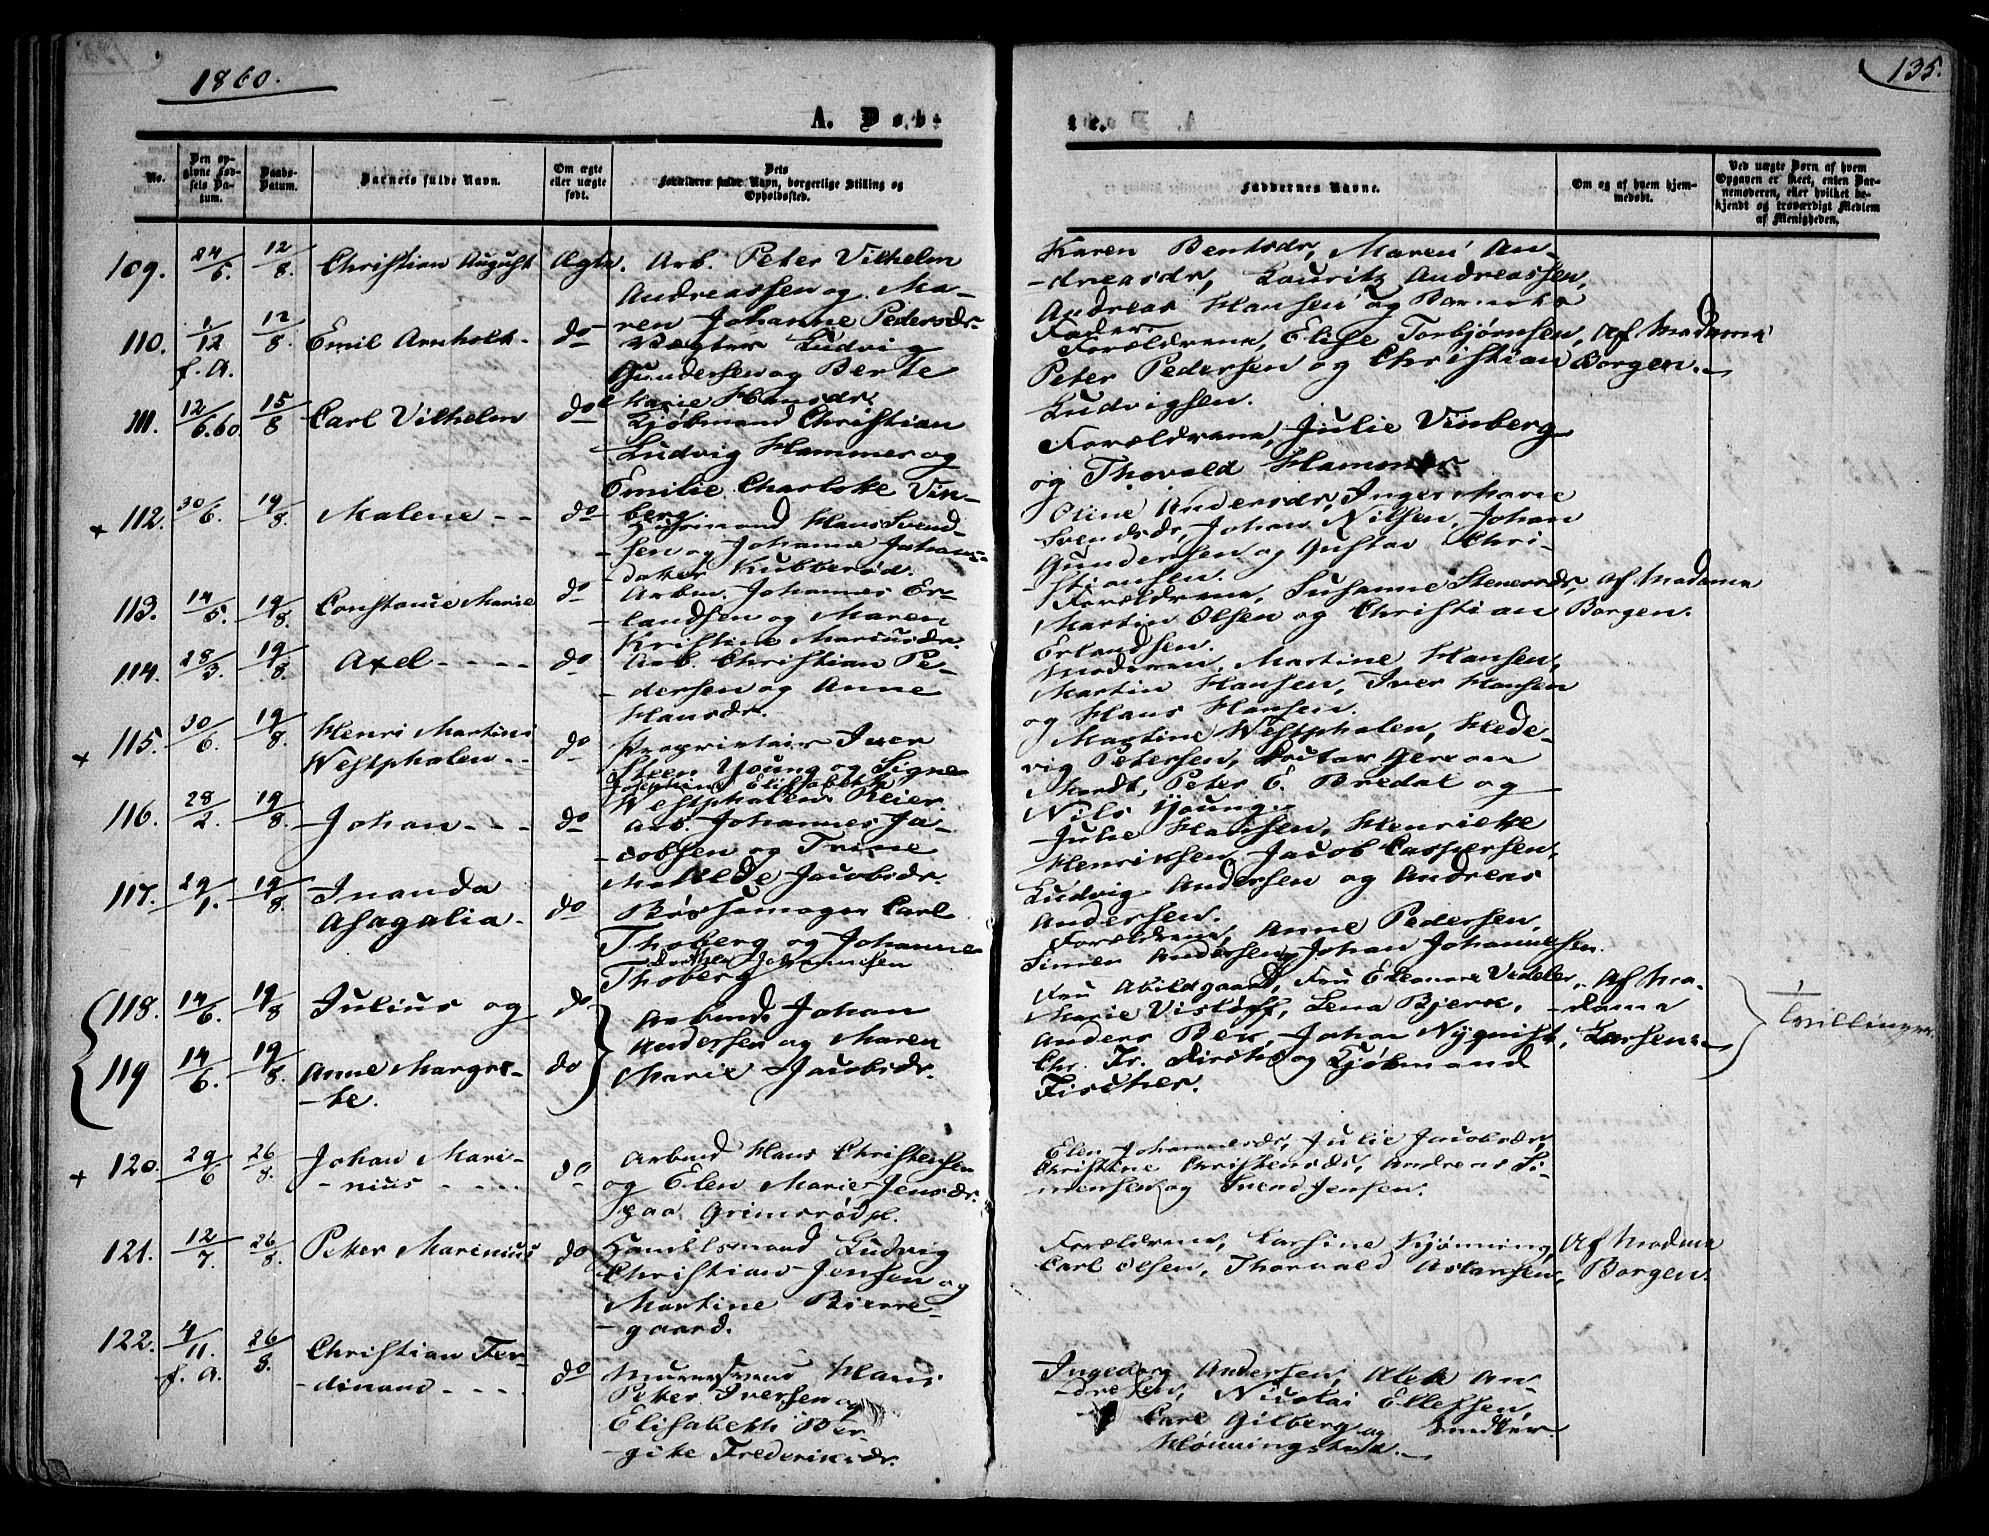 1860.
135.
A. Døb-
te.
No.
Den op-
givne Fød-
sels Da-
tum.
Daabs-
Datum.
Barnets fulde Navn.
Om ægte
eller uægte
født.
Dets
Forældres fulde Navn, borgerlige Stilling og
Opholdssted.
Faddernes Navne.
Om og af hvem hjem-
medøbt.
Ved uægte Børn af hvem
Opgaven er skeet, enten Bar-
nemoderen, eller hvilket be-
kjendt og troværdigt Medlem
af Menigheden.
109. 24/5. 12/8. Christian August Ægte. Arb. Peter Vilhelm
Andreassen og Ma-
ren Johanne Pedersdr.
Karen Bentsdr, Maren An-
dreasdr, Lauritz Andreassen,
Andreas Hansen og Barnets
Fader.
110. 1/12 f. A. 12/8. Emil Arnholt. do Vægter Ludvig
Gundersen og Berte
Marie Hansdr.
Forældrene, Elise Torbjørnsen,
Peter Pedersen og Christian
Ludvigsen.
Af Madame
Borgen.
111. 12/6.60. 15/8 Carl Vilhelm do Kjøbmand Christian
Ludvig Hammer og
Emilie Charlotte Vin-
berg.
Forældrene, Julie Vinberg
og Thovald Hammer
+ 112. 30/6. 19/8. Malene - - do Huusmand Hans Svend-
sen og Johanne Johans-
datter Kubberød.
Oline Andersdr, Inger Marie
Svendsdr, Johan Nilsen, Johan
Gundersen og Gustav Chri-
stiansen.
113. 14/5. 19/8. Constance Marie do Arbm. Johannes Er-
landsen og Maren
Kristine Mariusdr.
Forældrene, Susanne Stenersdr,
Martin Olsen og Christian
Erlandsen.
Af Madame
Borgen.
114. 28/3. 19/8. Axel - - - - do Arb. Christian Pe-
dersen og Anne
Hansdr.
Moderen, Martine Hansen,
Martin Hansen, Iver Hansen
og Hans Hansen.
+ 115. 30/6. 19/8. Henri Martini
Westphalen - - do Proprietair Iver
Steen Young og Signe
Josephine Elisabeth
Westphalen Reier
Martine Westphalen, Hede-
vig Petersen,
Peter E. Bredal og
Nils Young.
116. 28/2. 19/8. Johan - - - do Arb. Johannes Ja-
cobsen og Trine
Mathilde Jacobsdr.
Julie Hansen, Henriette
Henriksen, Jacob Caspersen,
Ludvig Andersen og Andreas
Andersen.
117. 29/1. 19/8. Inanda
Asagalia - do Bøssemager Carl
Thoberg og Johanne
Dorthea Johannesen
Thoberg
Forældrene, Anne Pedersen,
Simen Andersen, Johan Johannesen.
118. 14/6. 19/8 Julius og do
119 14/6. 19/8. Anne Margre-
te. do
Arbmd. Johan
Andersen og Maren
Marie Jacobsdr.
Fru Abildgaard, Fru Eleonore Vedeler,
Marie Vistoff, Lena Bjerk,
Anders Bek, Johan Nyqvist,
Chr. Fr. og Kjøbmand
Fischer.
Af Ma-
dame
Larsen.
Tvillinger.
+ 120. 29/6 26/8. Johan Mari-
nius - - - - do Arbmd Hans Christensen
og Elen Marie Jensdr.
paa Grimsrød pl.
Elen Johannesdr, Julie Jacobsdr,
Christine Christensdr, Andreas Si-
mensen og Svend Jensen.
121. 12/7. 26/8. Peter Marinius do Handelsmand Ludvig
Christian Jensen og
Martine Bierre-
gaard.
Forældrene, Larsine Kjønning,
Carl Olsen, Thorvald Aslansen,
Af Madme
Borgen.
122. 4/11. f. A. 26/8. Christian Fer-
dinand - - - - do Muursvend Hans
Peter Iversen og
Elisabeth Ber-
gite Frederiksdr.
Ingeborg Andersen, An-
dresen, Nicolai Ellefsen,
Carl Gilberg og Snedker
Hønningstad.